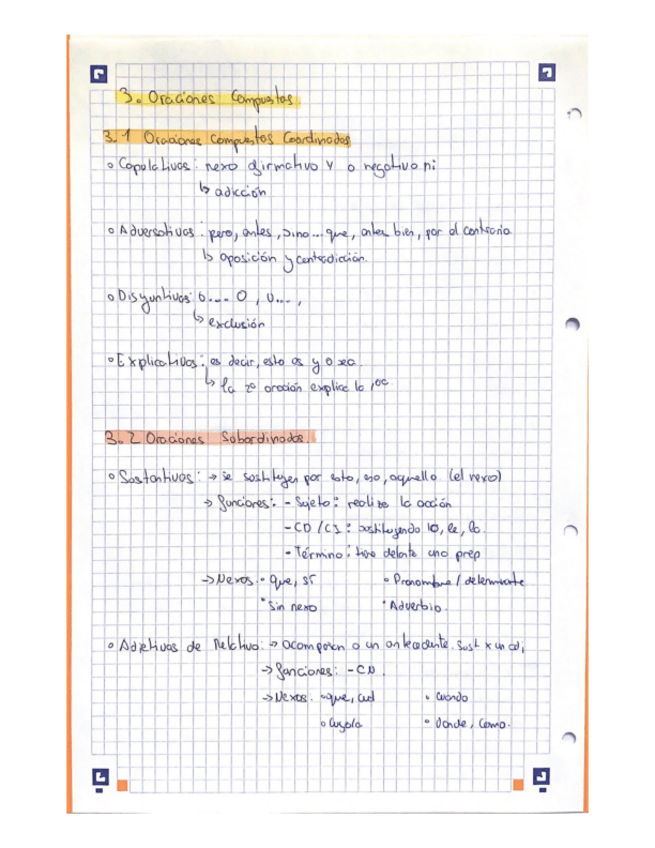 3. Oraciones Compuestas
3.1 Oraciones Compuestas Coordinadas
Copulativas: nexo afirmativo y o negativo ni
↳ adicción
Adversativas: pero, antes, sino... que, antes bien, por el contrario
↳ oposición y contradicción.
Disyuntivas: o.... o, u...,
↳ exclusión
Explicativas: es decir, esto es y o sea.
↳ la 2º oración explica la 1º oc
3.2 Oraciones Subordinadas.
Sustantivas: → se sustituyen por esto, eso, aquello (el nexo)
→ funciones: - Sujeto: realiza la acción
- CD / CI: sustituyendo lo, le, la.
- Término: tiene delante una prep
→ Nexos: • que, si • Pronombre / determinante
• Sin nexo • Adverbio.
Adjetivas de Relativo: → acompañan a un antecedente. Sust x un adj
→ funciones: - CN.
→ Nexos: • que, cual • cuando
• Cuyo/a • donde, como.